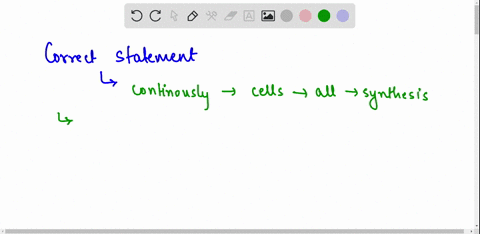 Correct statement
↳ continously → cells → all → synthesis
↳